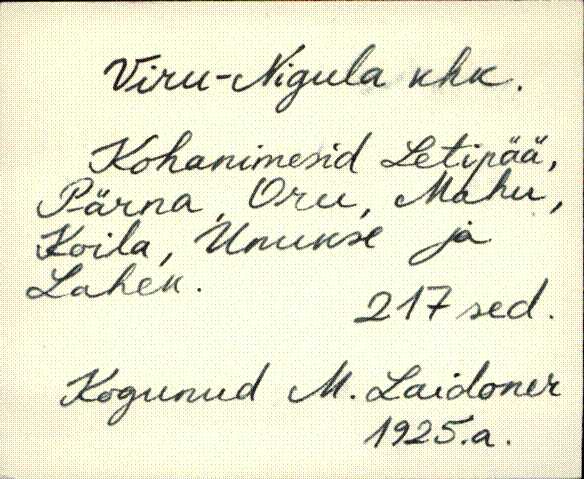 Viru-Nigula khk.
Kohanimesid Letipää,
Pärna, Oru, Mahu,
Koila, Unukse ja
Lahek.
217 sed.
Kogunud M. Laidoner
1925.a.